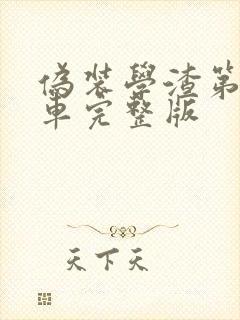 偽裝學渣第
車完整版
天下天